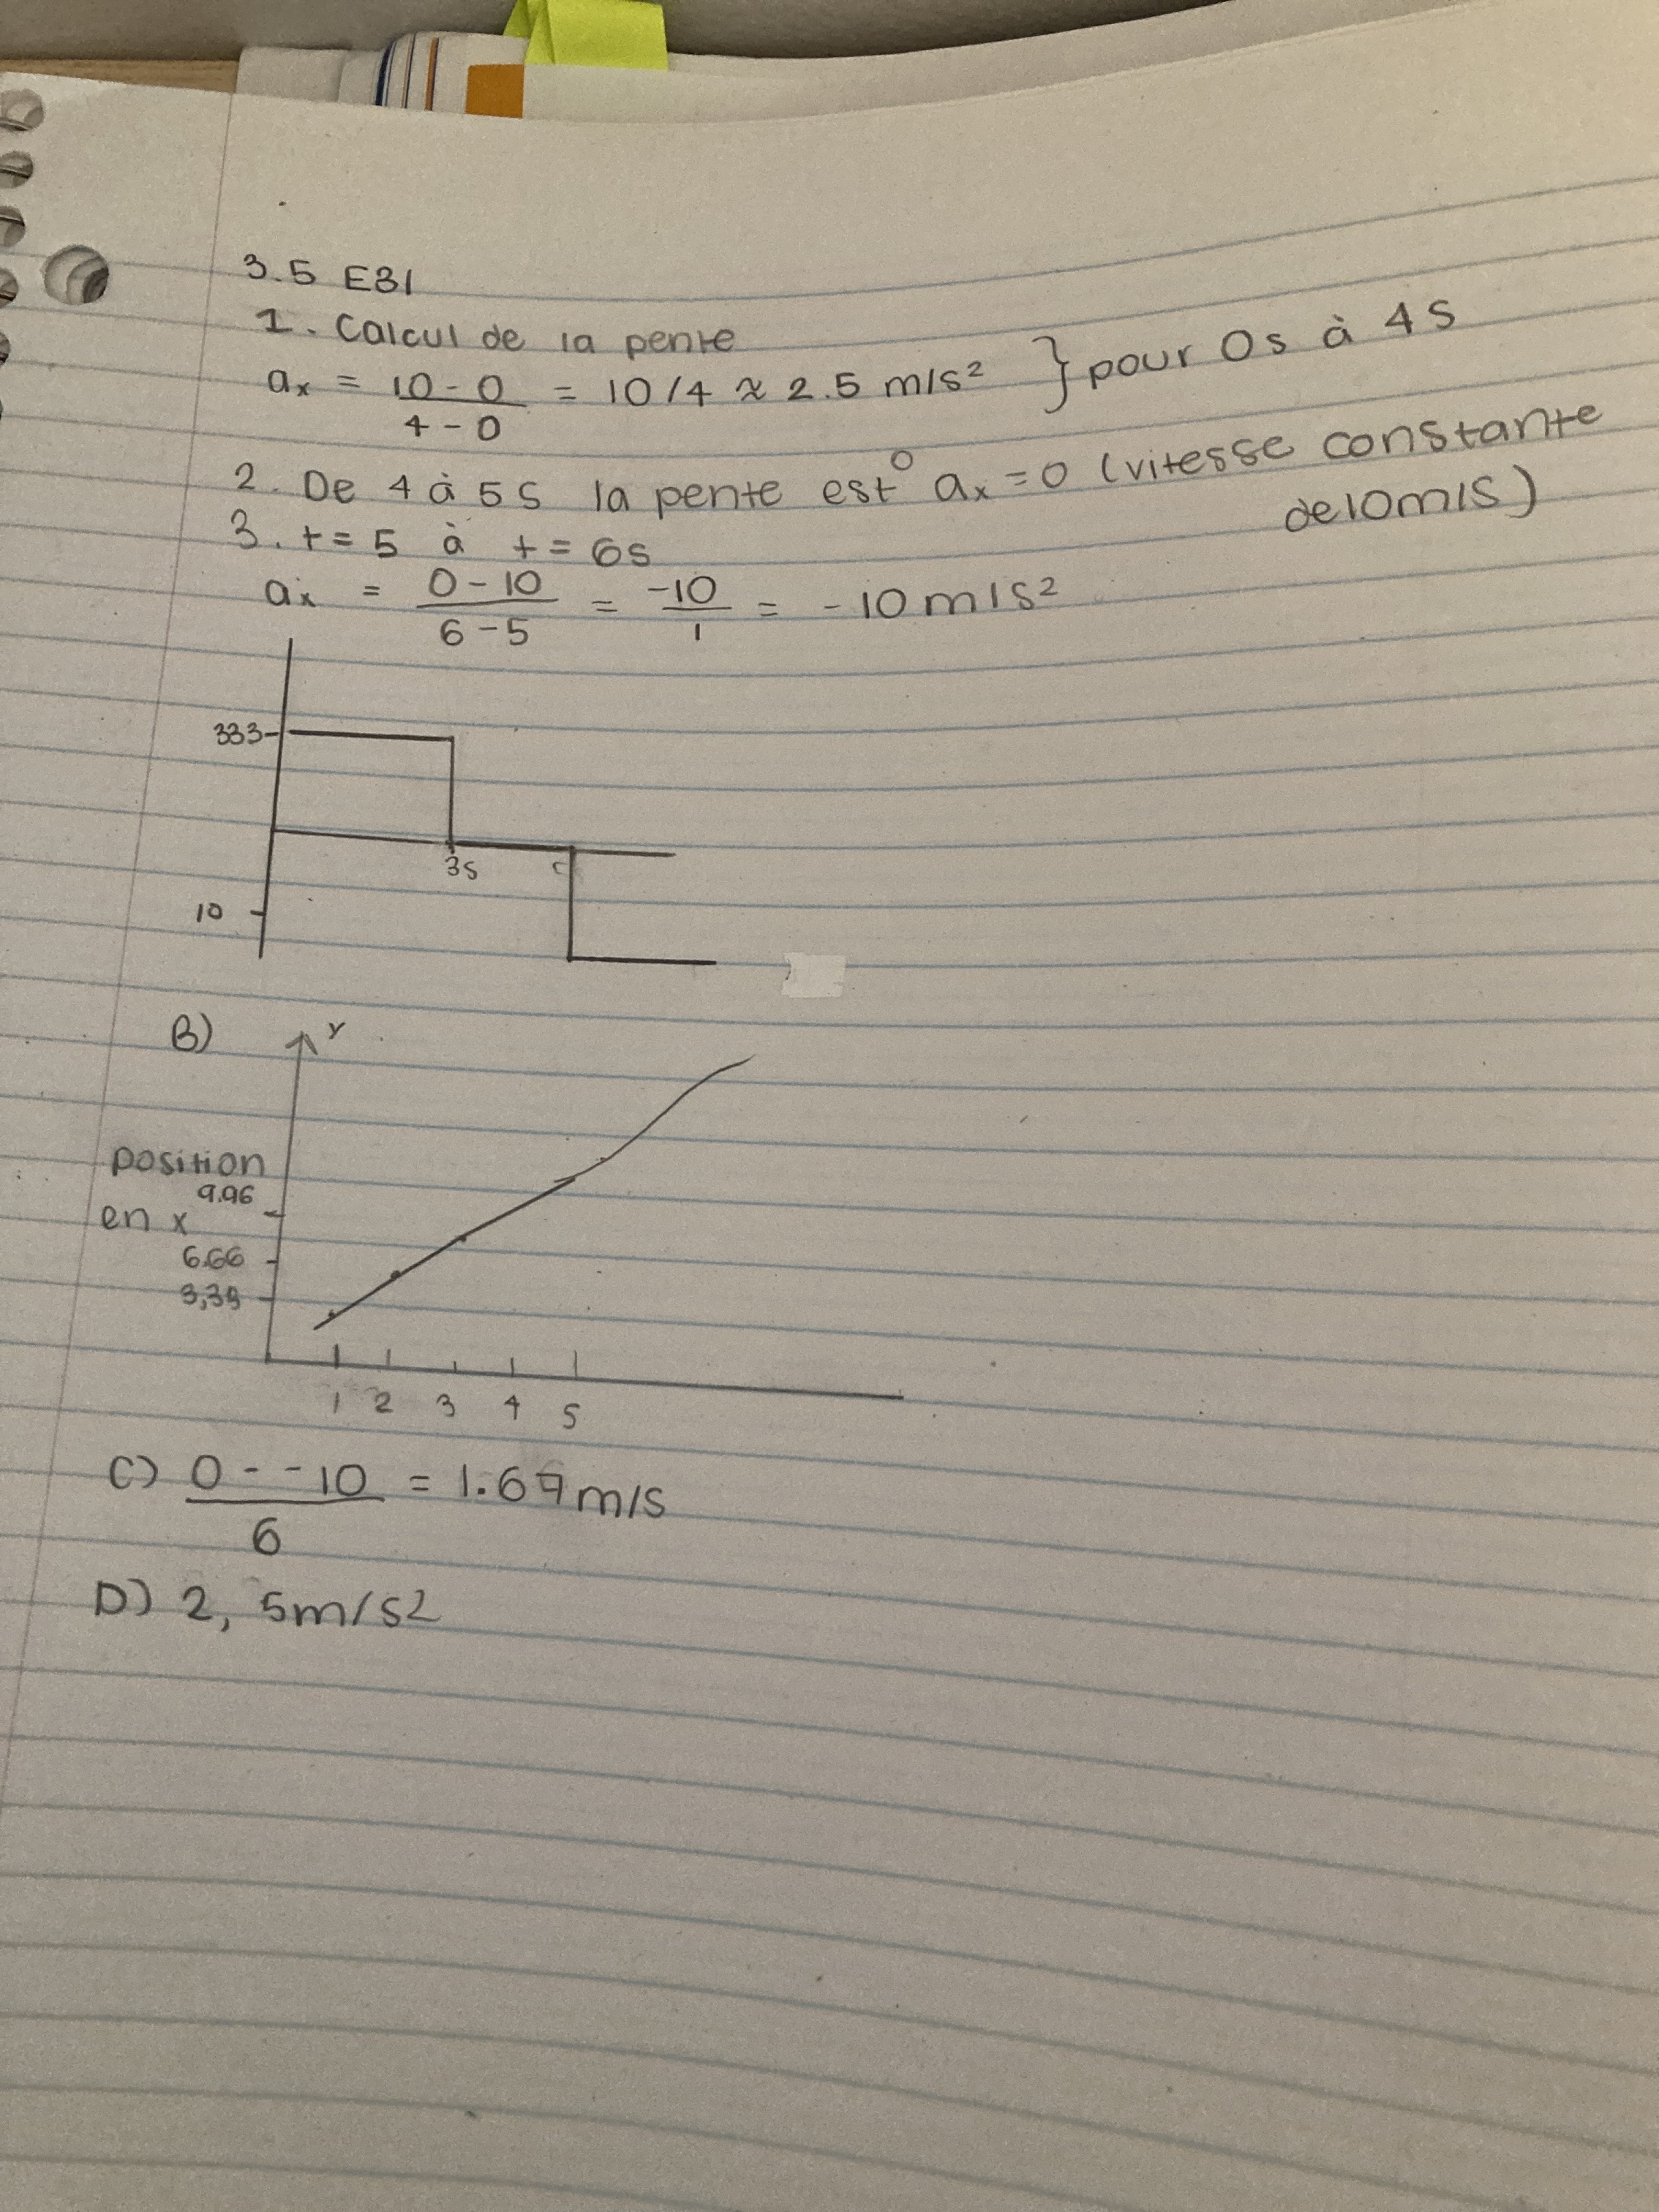 3.5 E31
1. Calcul de la pente
ax = 10 - 0 / 4 - 0 = 10/4 ≈ 2.5 m/s² } pour 0s à 4s
2. De 4 à 5s la pente est 0 ax = 0 (vitesse constante
de 10m/s)
3. t = 5 à t = 6s
ax = 0 - 10 / 6 - 5 = -10 / 1 = -10 m/s²
333
3s
10
B)
Y
position
9.96
en x
6.66
3,39
1 2 3 4 5
C) 0 - -10 / 6 = 1.67 m/s
D) 2, 5m/s2